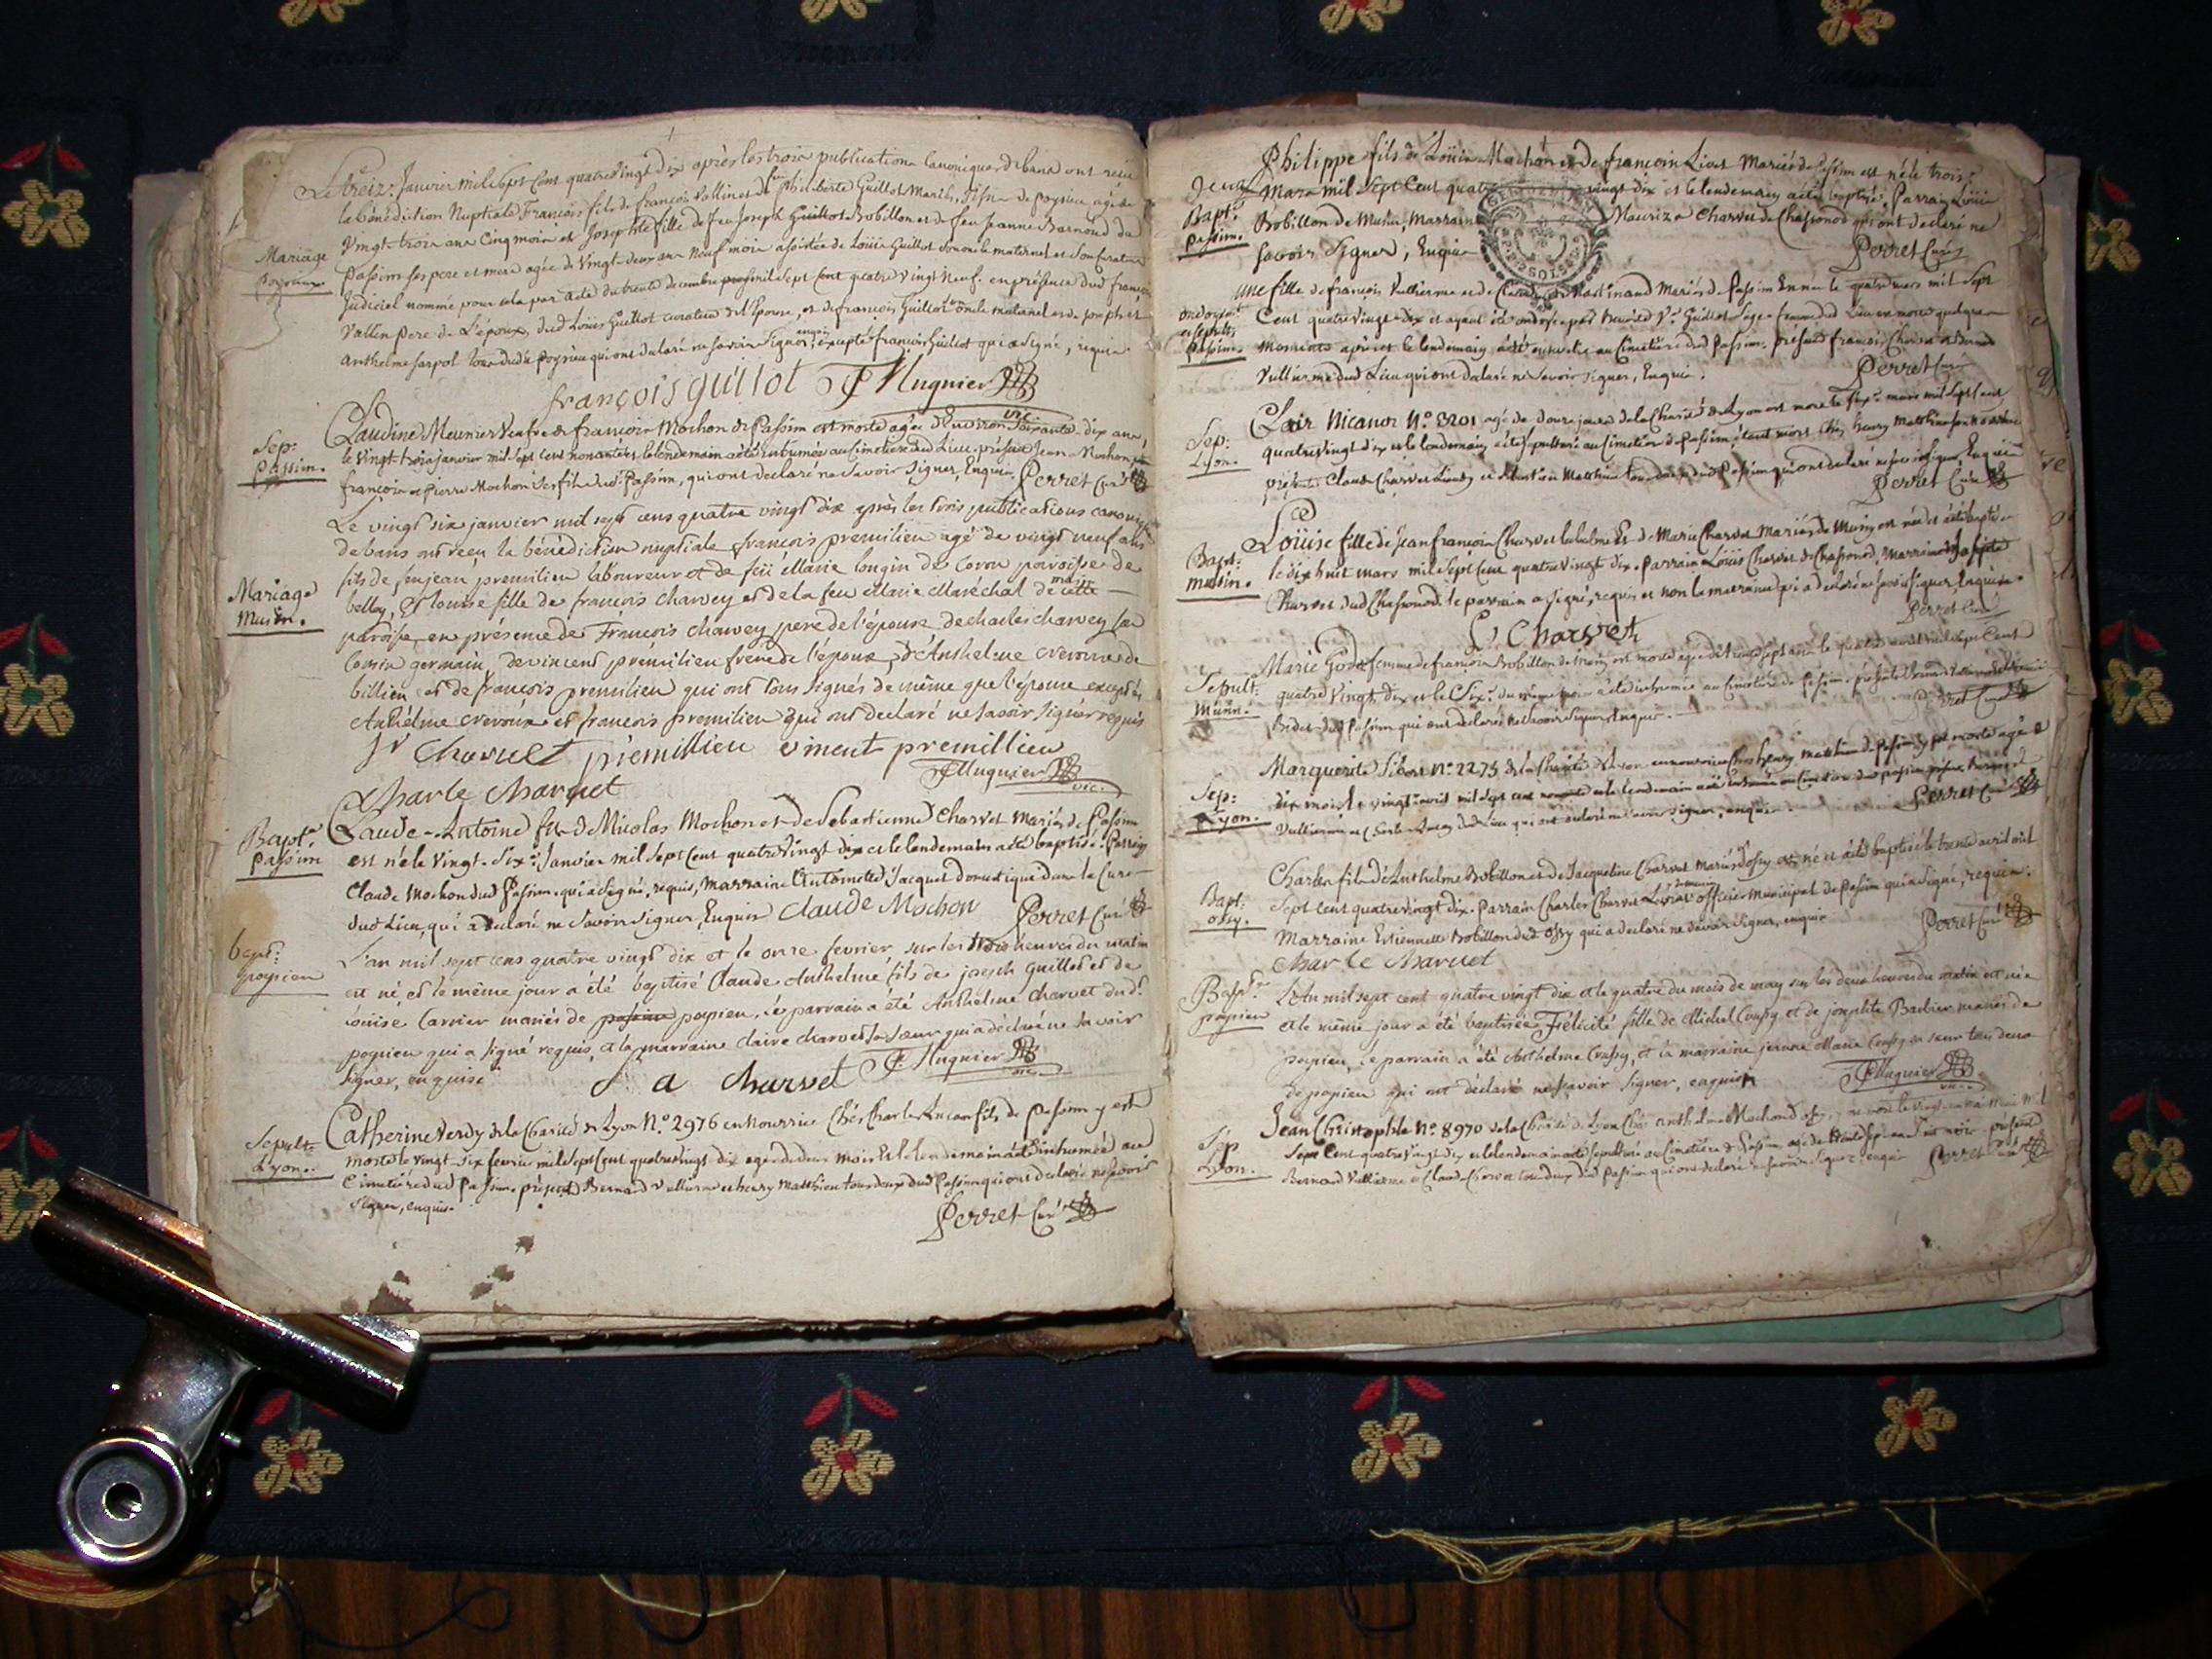 Le treize Janvier mil sept cent quatre vingt dix après les trois publications canoniques de bans ont reçu
la bénédiction Nuptiale François fils de françois Vallin et de philiberte Guillot Mariés, de poysieu, agé de
Vingt trois ans Cinq mois et Josephte fille de feu Joseph Guillot Bobillon et de feu Jeanne Barnoud de
Mariage
poysieu
Passin ses pere et mere agée de Vingt deux ans Neuf mois assistée de Loüis Guillot son oncle maternel et son Curateur
Judiciel nommé pour cela par acte du trente decembre mil sept cent quatre vingt Neuf. en présence dud françois
Vallin Pere de L'époux, dud Loüis Guillot curateur de l'Epouse, et de françois Guillot oncle maternel et de joseph et
anthelme Sarpol tous dudit poysieu qui ont declaré ne savoir Signer, enquis, excepté françois Guillot qui a Signé, requis
françois guillot Huguier vic.
Sep:
Passin.
Claudine Meunier Veufve de françois Mochon de Passin est morte agée d'Environ Soixante dix ans,
le vingt trois janvier mil sept cent nonante, et le lendemain a été inhumée au Cimetiere dud Lieu. présens Jean Mochon,
françois et Pierre Mochon ses fils dud. Passin, qui ont declaré ne Savoir Signer, Enquis. Perret Curé
Le vingt six janvier mil sept cens quatre vingt dix après les trois publications canoniques
de bans ont reçu la bénédiction nuptiale françois premilieu agé de vingt neuf ans
fils de feu jean premilieu laboureur et de feü Marie longin de Coron paroisse de
Mariage
Musin.
belley, Et louise fille de françois charvey et de la feu Marie Maréchal de Musin cette
paroisse, en présence de François charvey pere de l'épouse de charles charvey son
Cousin germain, de vincent prémilieu frere de l'époux, d'Anthelme crevoura de
billieu et de françois premilieu qui ont tous signés de même que l'épouse exceptés
Anthelme crevoura et françois premilieu qui ont declaré ne savoir signer requis
fr Charvet premillieu vincent premillieu
Charle Charvet Huguier vic.
Bapt.
Passin
Claude-Antoine fils de Nicolas Mochon et de Sebastienne Charvet Mariés de Passin
est né le Vingt-Six Janvier mil Sept Cent quatre Vingt dix et le lendemain a été baptisé. Parrain
Claude Mochon dud Passin. qui a Signé, requis, Marraine Antoinette Jacquet domestique dans la Cure
dud Lieu, qui a déclaré ne Savoir Signer, Enquise Claude Mochon Perret Curé
bapt:
poysieu
L'an mil sept cens quatre vingt dix et le onze fevrier sur les trois heures du matin
est né, et le même jour a été baptisé Claude Anthelme fils de joseph guillot et de
louise Carrier mariés de poysieu, le parrain a été Anthelme charvet dud.
poysieu qui a signé requis, et la marraine claire charvet sa sœur qui a déclaré ne savoir
signer, enquise
a charvet Huguier vic.
Sepult:
Lyon.
Catherine Verdy de la Charité de Lyon N.º 2976 en Nourrice Chés Charles Lucan fils, de Passin y est
morte le vingt-Six fevrier mil Sept Cent quatre vingt dix agée de deux mois Et le lendemain a été inhumée au
Cimetiere dud Passin. présens Bernard Vullierme et henry Matthieu tous deux dud Passin qui ont declaré ne Savoir
Signer, enquis.
Perret Curé
Philippe fils de Loüis Mochon et de françoise Livet Mariés de Passin est né le trois
Mars mil Sept Cent quatre vingt dix et le lendemain a été baptisé, Parrain Loüis
Bapt.
Passin.
Bobillon de Musin, Marraine Maurize Charvet de Chassonod qui ont declaré ne
Savoir Signer, Enquis Perret Curé
une fille de françois Vullierme et de Mariés de Passin Ennée le quatre mars mil Sept
Passin.
Cent quatre Vingt-dix et ayant été ondoyée par Guillot Sage-femme dud Lieu est morte quelques
moments après et le lendemain a été ensevelie au Cimetiere dud Passin. présens françois et Bernard
Vullierme dud Lieu qui ont declaré ne Savoir Signer, Enquis. Perret Curé
Sep:
Lyon.
Clair Nicanor N.º 3201 agé de douze jours de la Charité de Lyon est mort le Six mars mil Sept cent
quatre Vingt dix et le lendemain a été sepulturé au Cimetiere de Passin, étant mort Chés henry Matthieu
présens Claude Charvet et Matthieu tous deux dud Passin qui ont declaré ne Savoir Signer, Enquis
Perret Curé
Bapt:
musin.
Loüise fille de jean françois Charvet et de Marie Charvet Mariés de Musin est née et a été baptisée
le dix huit mars mil Sept Cent quatre Vingt dix. Parrain Loüis Charvet de Chassonod, Marraine
Charvet dud Chassonod. le parrain a Signé, requis et non la marraine qui a declaré ne Savoir Signer, Enquise.
L Charvet Perret Curé
Sepult:
Musin:
Marie Godet femme de françois Bobillon de Musin est morte agée de trente sept ans le quatre avril mil Sept Cent
quatre Vingt dix et le Six du même mois a été inhumée au Cimetiere de Passin. présens
dud Passin qui ont declaré ne Savoir Signer, Enquis. Perret Curé
Sep:
Lyon.
Marguerite N.º 2275 de la Charité de Lyon en nourrice Chés henry Matthieu de Passin y est morte agée de
dix mois le vingt avril mil Sept cent nonante et le lendemain a été inhumée au Cimetiere dud passin présens Bernard
Vullierme et Charles Lucan dud Lieu qui ont declaré ne Savoir Signer, enquis. Perret Curé
Bapt:
ossy.
Charles fils d'Anthelme Bobillon et de Jacqueline Charvet Mariés d'ossy est né et a été baptisé le trente avril mil
Sept Cent quatre Vingt dix. Parrain Charles Charvet officier Municipal de Passin qui a Signé, requis.
Marraine Estiennette Bobillon dud ossy qui a declaré ne Savoir Signer, enquise Perret Curé
Charle Charvet
Bapt.
poysieu
L'An mil sept cent quatre vingt dix et le quatre du mois de may sur les deux heures du matin est née
et le même jour a été baptisée Félicité fille de Michel Cussy et de josephte Barbier mariés de
poysieu, le parrain a été Anthelme Cussy, et la marraine jeanne Marie Cussy sa sœur tous deux
de poysieu qui ont déclaré ne savoir signer, enquis Huguier vic.
Sep
Lyon.
Jean Christophle N.º 8970 de la Charité de Lyon Chés anthelme Mochon est mort le vingt mai mil
Sept Cent quatre Vingt dix et le lendemain a été sepulturé au Cimetiere de Passin présens
Bernard Vullierme et Claude Charvet tous deux dud Passin qui ont declaré ne Savoir Signer enquis Perret Curé